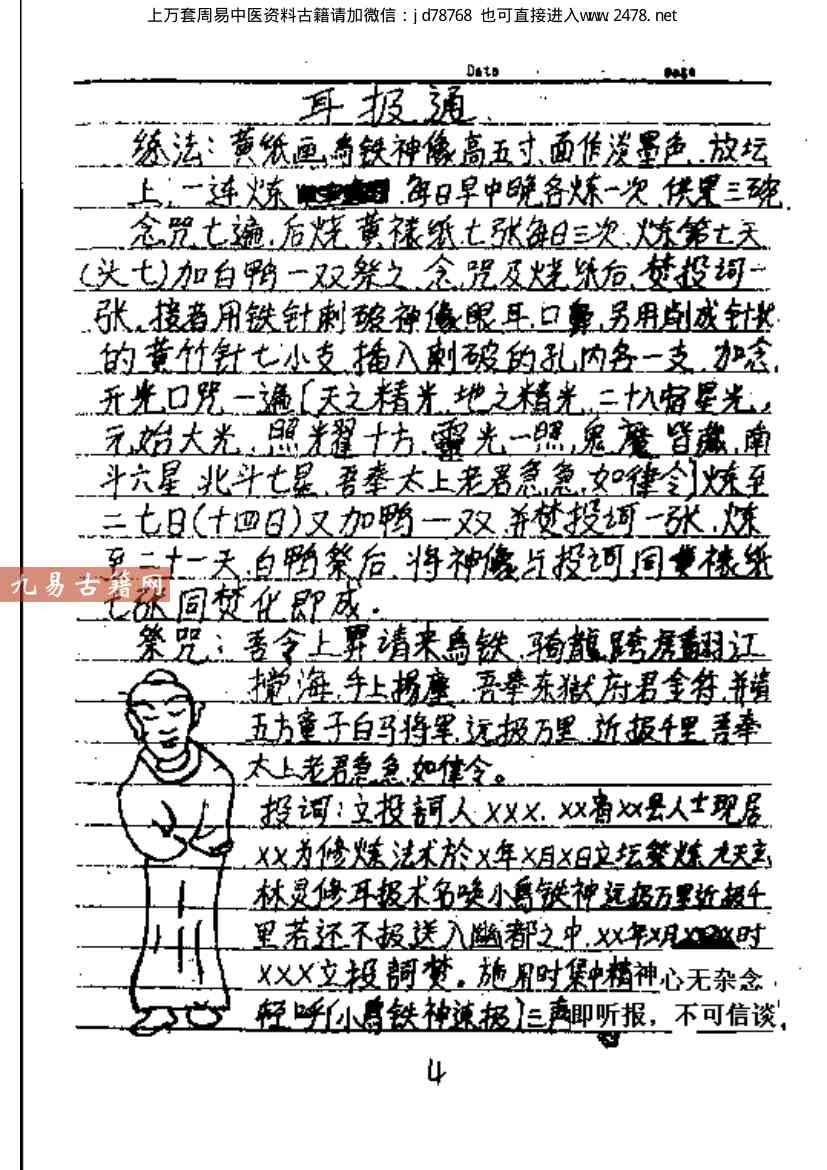 上万套周易中医资料古籍请加微信：jd78768 也可直接进入www.2478.net
Date Page
耳报通
练法：黄纸画乌铁神像高五寸、面作淡墨色、放坛
上，一连炼 每日早中晚各炼一次，供果三碗，
念咒七遍，后烧黄裱纸七张每日三次，炼第七天
(头七)加白鸭一双祭之，念咒及烧纸后，焚投词一
张，接着用铁针刺破神像眼耳口鼻，另用削成针状
的黄竹针七小支，插入刺破的孔内各一支，加念
开光口咒一遍〔天之精光，地之精光，二十八宿星光，
元始大光，照耀十方，靈光一照，鬼魔皆藏，南
斗六星，北斗七星，吾奉太上老君急急如律令〕炼至
二七日(十四日)又加鸭一双并焚投词一张，炼
至二十一天，白鸭祭后，将神像与投词，同黄裱纸
七张同焚化即成。
九易古籍网
祭咒：吾令上界请来乌铁，骑龍跨虎翻江
搅海，手上揚塵，吾奉东獄府君金符，并请
五方童子白马将军，远报万里，近报千里吾奉
太上老君急急如律令。
投词：立投詞人XXX，XX省XX县人士现居
XX为修炼法术於X年X月X日立坛祭炼九天玄
林灵修耳报术名唤小乌铁神远报万里近报千
里若还不报送入幽都之中，XX年X月 时
XXX立投詞焚。施用时集中精神心无杂念，
轻呼〔小乌铁神速报〕三声即听报，不可信谈
4